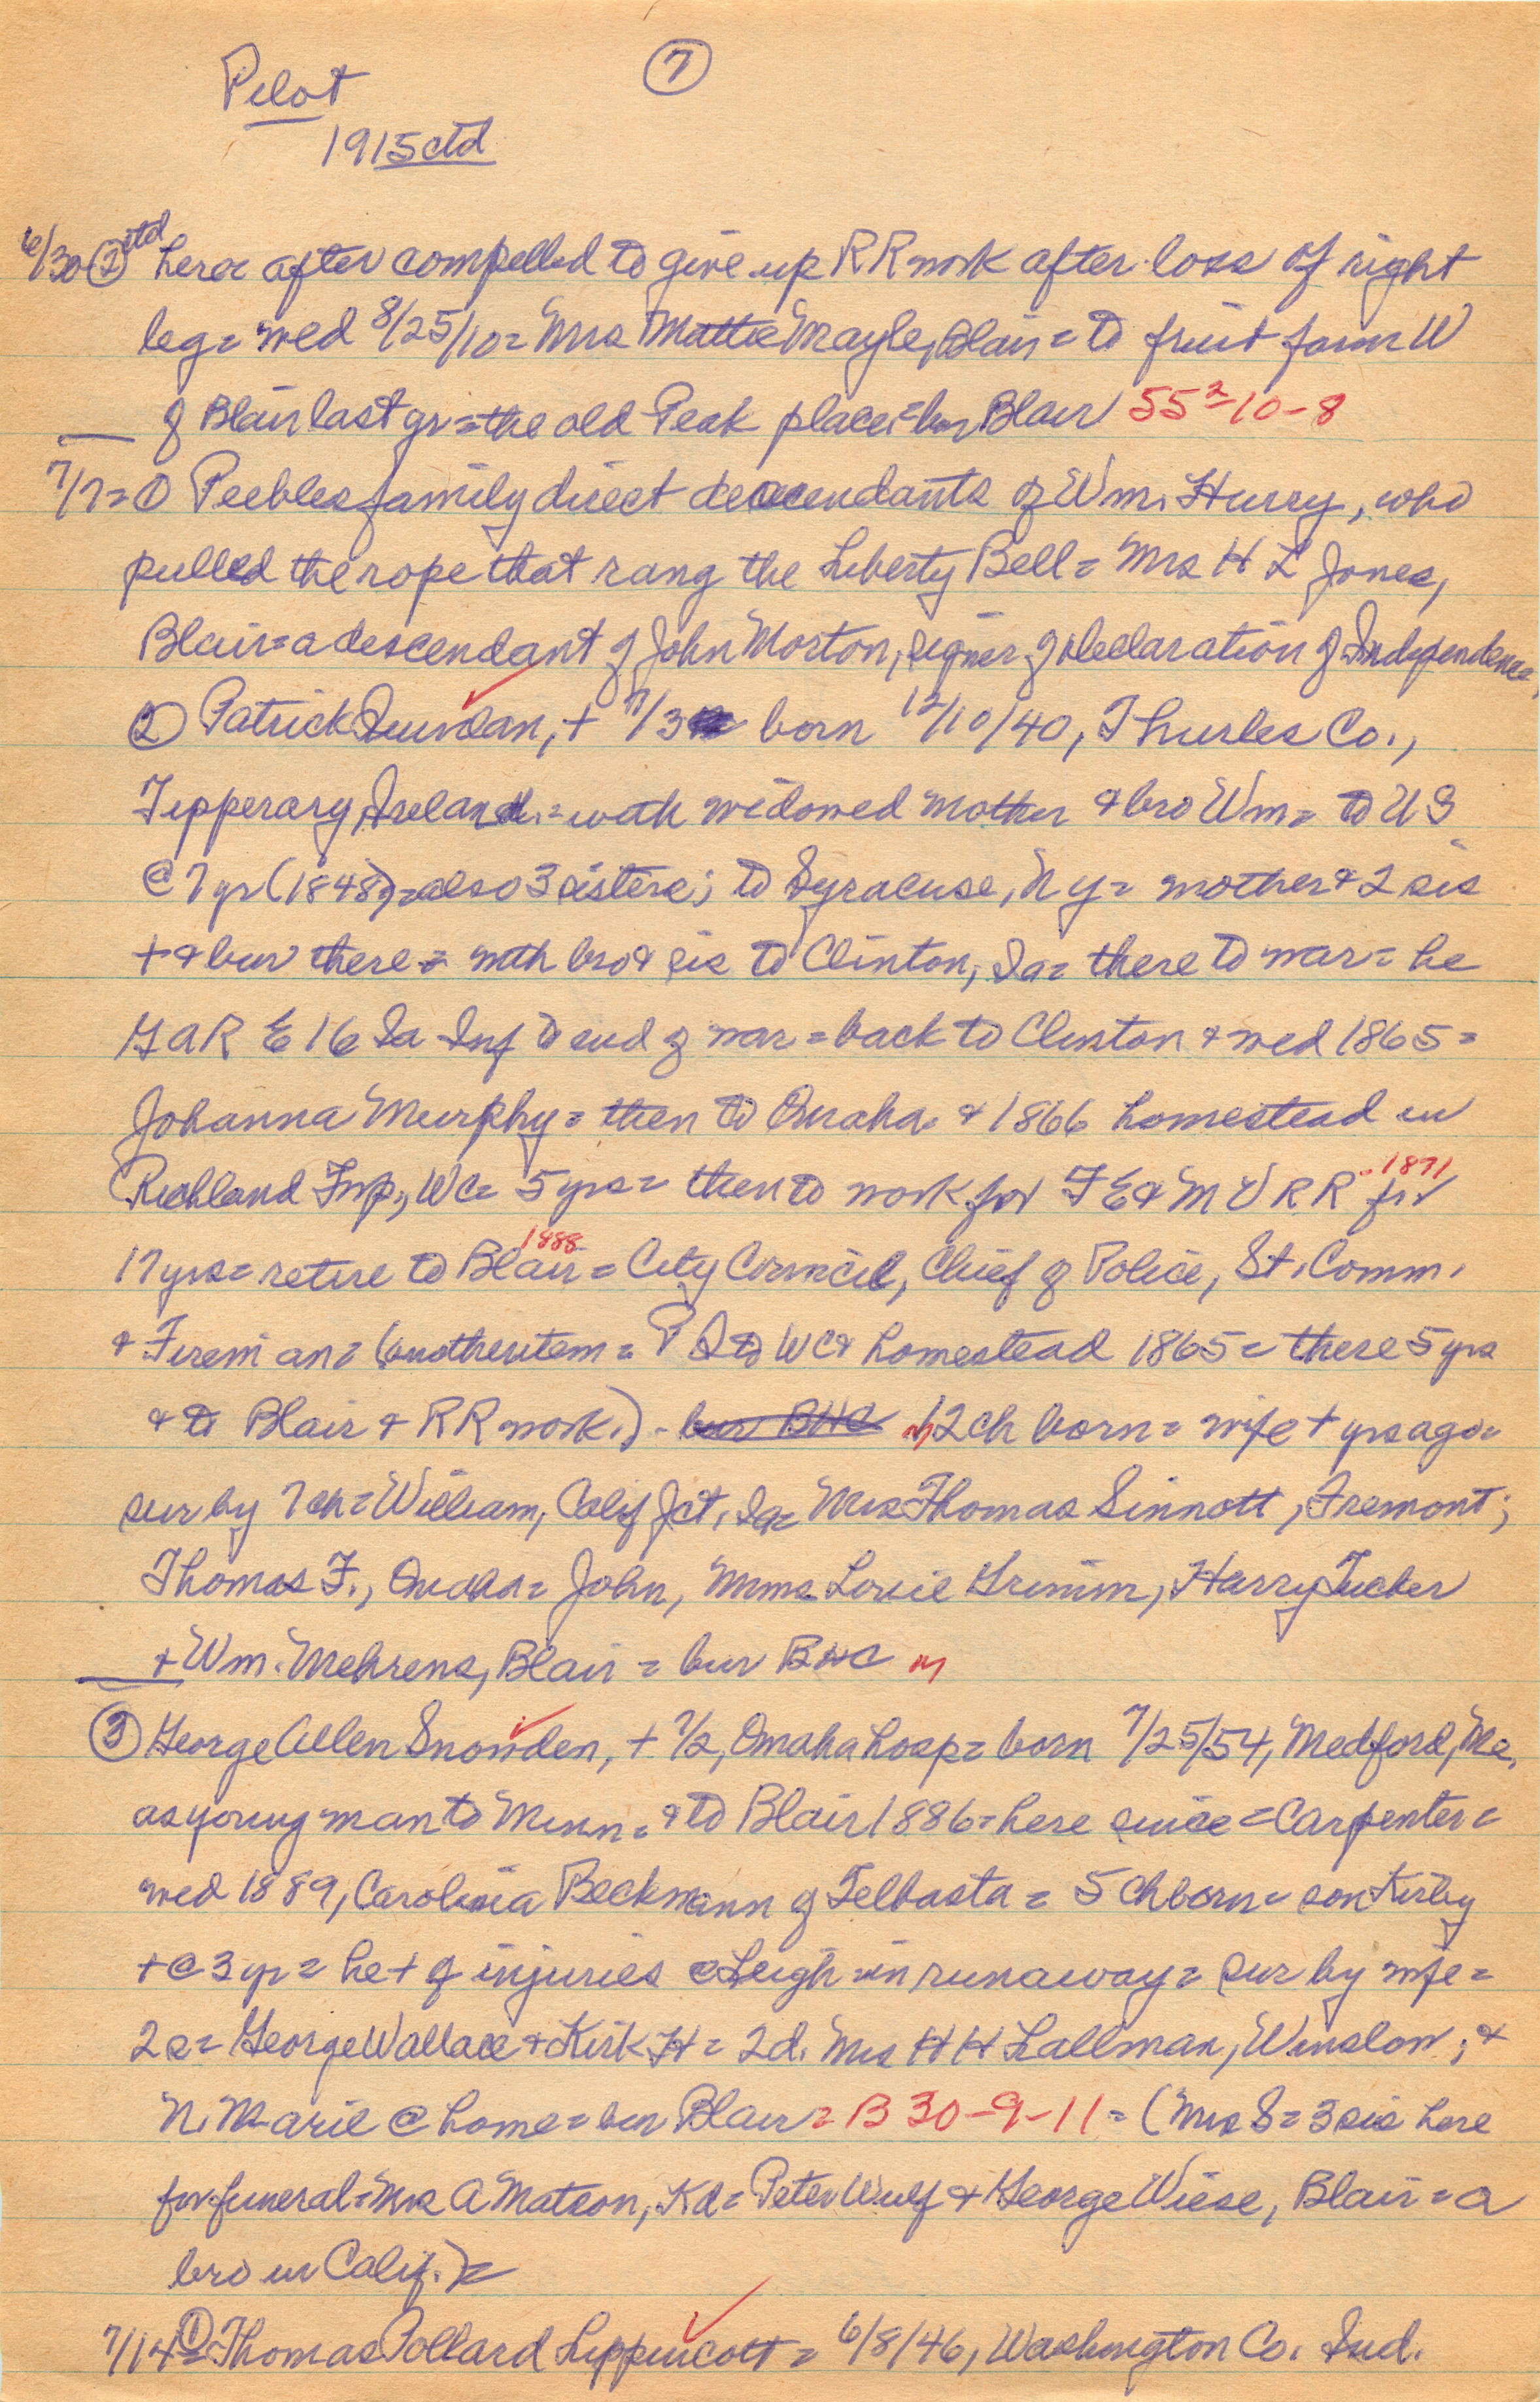 Pilot
7
1915 ctd
6/30 2 ctd here after compelled to give up RR work after loss of right
leg = wed 8/25/10 = Mrs Mattie Mayle, Blair = to fruit farm W
of Blair last yr = the old Peak place = bur Blair 55²-10-8
7/7 = 1 Peebles family direct descendants of Wm. Hurry, who
pulled the rope that rang the Liberty Bell = Mrs H L Jones,
Blair = a descendant of John Morton, signer of Declaration of Independence
2 Patrick Quinlan, + 7/3 born 12/10/40, Thurles Co.,
Tipperary, Ireland. = with widowed mother & bro Wm = to US
@ 7 yr (1848) = also 3 sisters; to Syracuse, N Y = mother & 2 sis
+ & bur there = with bro & sis to Clinton, Ia = there to war = he
GAR E 16 Ia Inf to end of war = back to Clinton & wed 1865 =
Johanna Murphy = then to Omaha & 1866 homestead in
Richland Twp, WC = 5 yrs = then to work for F E & M V RR 1871 for
17 yrs = retire to Blair 1888 = City Council, Chief of Police, St. Comm.
& Fireman = (another item = P Q to WC & homestead 1865 = there 5 yrs
& to Blair & RR work.) - bur BHC 12 ch born = wife + yrs ago =
sur by 7 ch = William, Calif Jct, Ia = Mrs Thomas Sinnott, Fremont;
Thomas F., Omaha = John, Mmes Louie Grimm, Harry Tucker
& Wm. Mehrens, Blair = bur BHC m
3 George Allen Snowden, + 7/2, Omaha hosp = born 7/25/54, Medford, Me.
as young man to Minn = & to Blair 1886 = here since = Carpenter =
wed 1889, Carolina Beckmann of Telbasta = 5 ch born = son Kirby
+ @ 3 yr = he + of injuries @ Leigh in runaway = sur by wife =
2 s = George Wallace & Kirk H = 2 d. Mrs H H Lallman, Winslow; &
N. Marie @ home = bur Blair = B 30-9-11 = (Mrs S = 3 sis here
for funeral = Mrs A Matson, Kd = Peter Wulf & George Wiese, Blair = a
bro in Calif.) =
7/14 1 = Thomas Pollard Lippincott = 6/8/46, Washington Co. Ind.